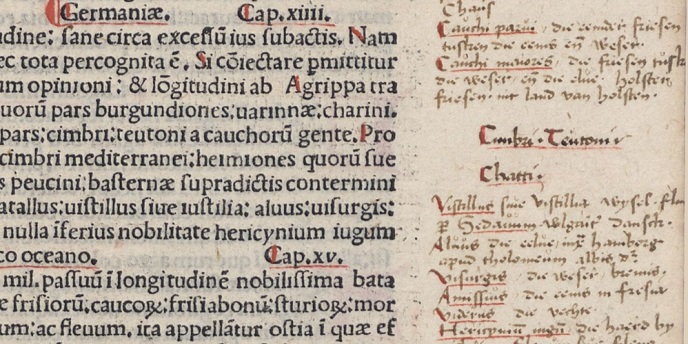 Germaniæ. Cap.xiiii.
udine: sane circa excessū ius subactis. Nam
ec tota percognita ē. Si cōiectare pmittitur
um opinioni: & lōgitudini ab Agrippa tra
uorū pars burgundiones:uarinnæ:charini.
pars:cimbri:teutoni a cauchorū gente.Pro
cimbri mediterranei:hermiones quorū sue
s peucini:basternæ supradictis contermini
atallus:uistillus siue iustilia:aluus:uisurgis:
nulla īferius nobilitate hericynium iugum
co oceano. Cap.xv.
mil.passuū ī longitudinē nobilissima bata
e frisiorū,caucoꝝ:frisiabonū:sturioꝝ:mor
um:ac fleuum. ita appellātur ostia ī quæ ef
Chaus
Cauchi parui, die eemder friesen
tusken die eems eñ weser.
Cauchi maiores, die friesen tusk
die weser, eñ die elue, holsten
friesen land van holsten.
Cimbri. Teutoni
Chatti.
Vistillus siue vistillia wysel.
Aluus die elue, hamborg
apud tholomeum albis
Visurgis, die weser, bremis.
Amissius, die eems in fresia
die vechte
Hericynium die haerd by